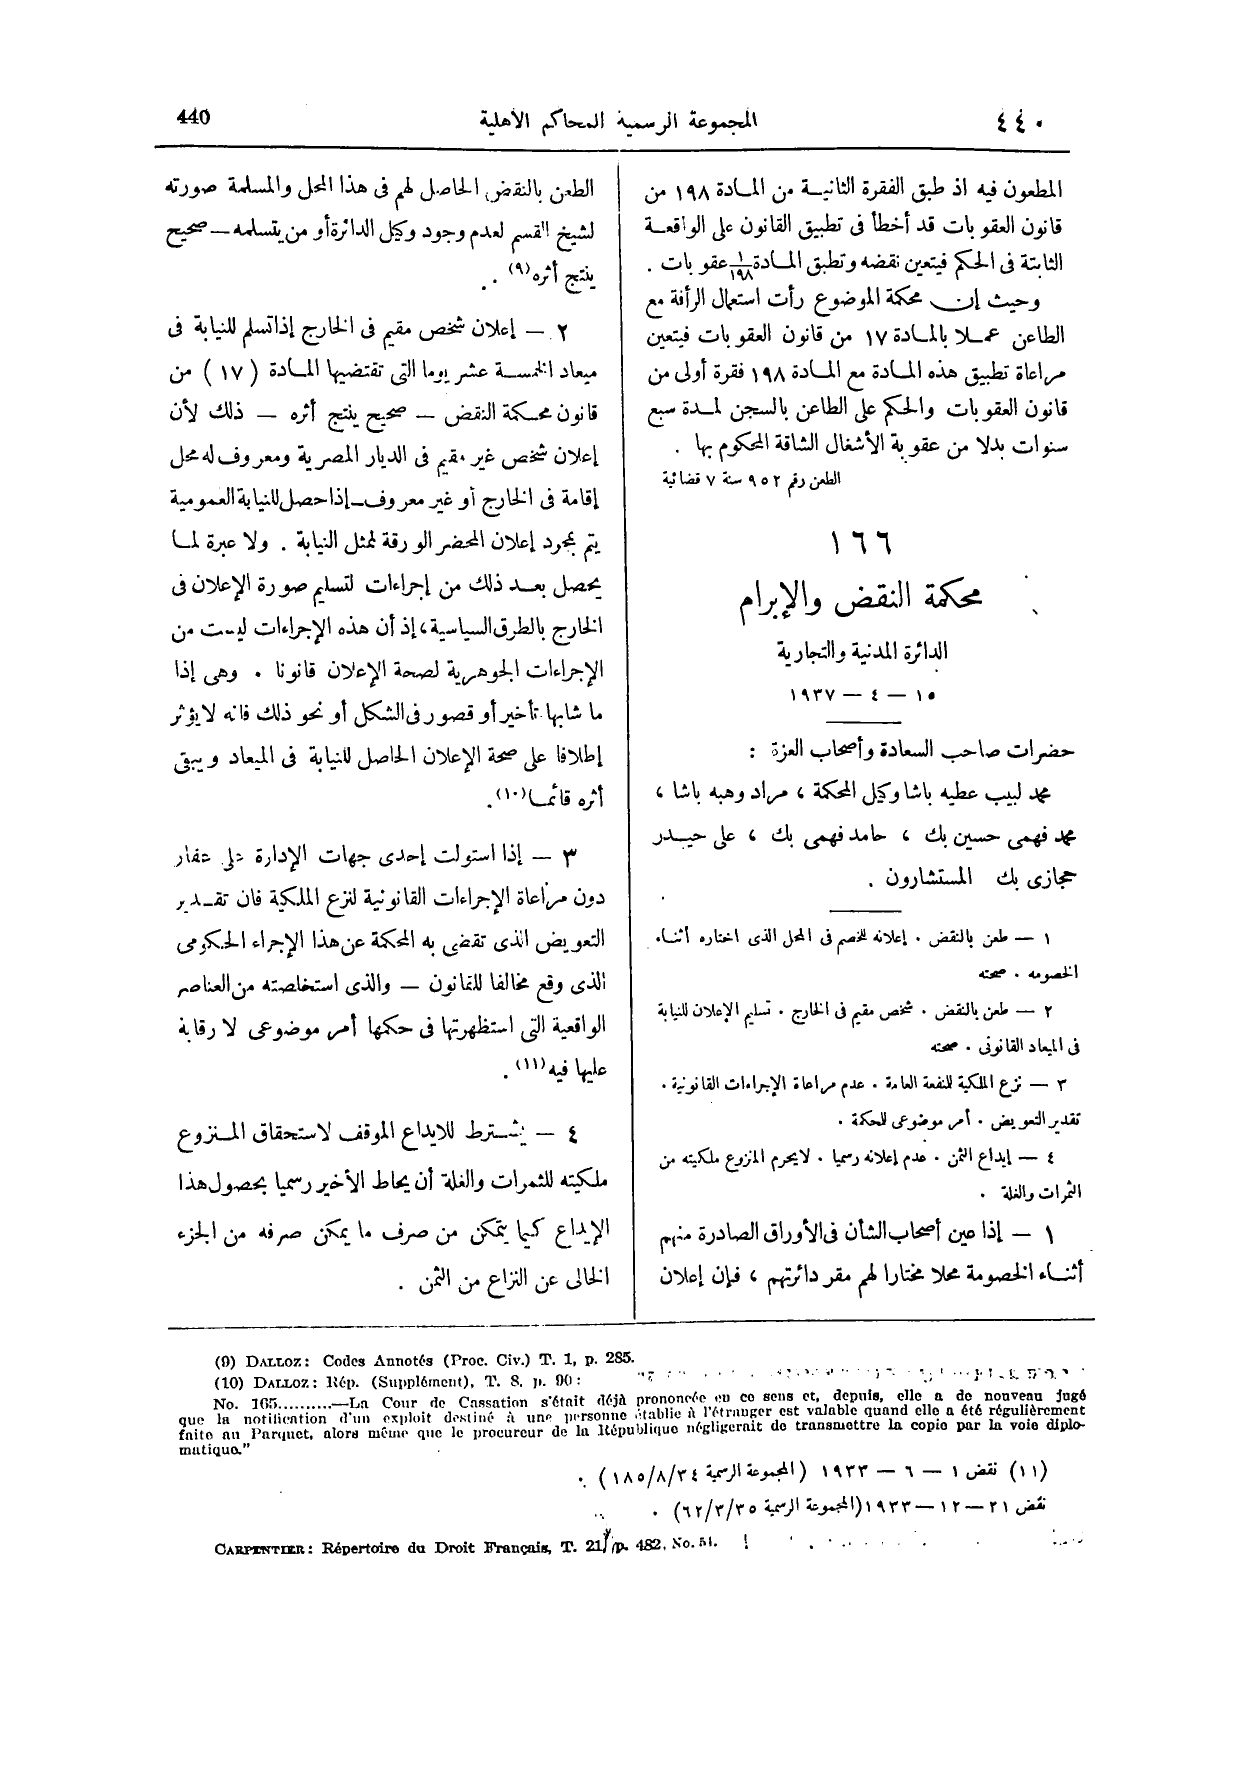 ٤٤٠
المجموعة الرسمية للمحاكم الأهلية
440
المطعون فيه اذ طبق الفقرة الثانيـة من المادة ١٩٨ من
قانون العقوبات قد أخطأ فى تطبيق القانون على الواقعـة
الثابتة فى الحكم فيتعين نقضه وتطبق المادة ١/١٩٨ عقوبات .
وحيث إن محكمة الموضوع رأت استعمال الرأفة مع
الطاعن عمـلا بالمـادة ١٧ من قانون العقوبات فيتعين
مراعاة تطبيق هذه المـادة مع المـادة ١٩٨ فقرة أولى من
قانون العقوبات والحكم على الطاعن بالسجن لمـدة سبع
سنوات بدلا من عقوبة الأشغال الشاقة المحكوم بها .
الطعن رقم ٩٥٢ سنة ٧ قضائية
١٦٦
محكمة النقض والإبرام
الدائرة المدنية والتجارية
١٥ — ٤ — ١٩٣٧
حضرات صاحب السعادة وأصحاب العزة :
محمد لبيب عطيه باشا وكيل المحكمة ، مراد وهبه باشا ،
محمد فهمى حسين بك ، حامد فهمى بك ، على حيـدر
حجازى بك المستشارون .
١ — طعن بالنقض . إعلانه للخصم فى المحل الذى اختاره أثناء
الخصومه . صحته
٢ — طعن بالنقض . شخص مقيم فى الخارج . تسليم الإعلان للنيابة
فى الميعاد القانونى . صحته
٣ — نزع الملكية للنفعة العامة . عدم مراعاة الإجراءات القانونية .
تقدير التعويض . أمر موضوعى للحكمة .
٤ — إيداع الثمن . عدم إعلانه رسميا . لايحرم المنزوع ملكيته من
الثمرات والغلة .
١ — إذا عين أصحاب الشأن فى الأوراق الصادرة منهم
أثنـاء الخصومة محلا مختارا لهم مقر دائرتهم ، فإن إعلان
الطعن بالنقض الحاصل لهم فى هذا المحل والمسلمة صورته
لشيخ القسم لعدم وجود وكيل الدائرة أو من يتسلمه — صحيح
ينتج أثره (٩) .
٢ — إعلان شخص مقيم فى الخارج إذا تسلم للنيابة فى
ميعاد الخمسـة عشر يوما التى تقتضيها المـادة ( ١٧ ) من
قانون محـكمة النقض — صحيح ينتج أثره — ذلك لأن
إعلان شخص غير مقيم فى الديار المصرية ومعروف له محل
إقامة فى الخارج أو غير معروف — إذا حصل للنيابة العمومية
يتم بمجرد إعلان المحضر الورقة لممثل النيابة . ولا عبرة لمـا
يحصل بعـد ذلك من إجراءات لتسليم صورة الإعلان فى
الخارج بالطرق السياسية ، إذ أن هذه الإجراءات ليست من
الإجراءات الجوهرية لصحة الإعلان قانونا . وهى إذا
ما شابها تأخير أو قصور فى الشكل أو نحو ذلك فانه لا يؤثر
إطلاقا على صحة الإعلان الحاصل للنيابة فى الميعاد ويبقى
أثره قائمـا (١٠) .
٣ — إذا استولت إحدى جهات الإدارة على عقار
دون مراعاة الإجراءات القانونية لنزع الملكية فان تقـدير
التعويض الذى تقضى به المحكمة عن هذا الإجراء الحكومى
الذى وقع مخالفا للقانون — والذى استخلصته من العناصر
الواقعية التى استظهرتها فى حكمها أمر موضوعى لا رقابة
عليها فيه (١١) .
٤ — يشـترط للايداع الموقف لاستحقاق المـنزوع
ملكيته للثمرات والغلة أن يحاط الأخير رسميا بحصول هذا
الإيداع كيما يتمكن من صرف ما يمكن صرفه من الجزء
الخالى عن النزاع من الثمن .
(9) DALLOZ: Codes Annotés (Proc. Civ.) T. 1, p. 285.
(10) DALLOZ: Rép. (Supplément), T. 8, p. 90:
No. 165..........—La Cour de Cassation s'était déjà prononcée en ce sens et, depuis, elle a de nouveau jugé
que la notification d'un exploit destiné à une personne établie à l'étranger est valable quand elle a été régulièrement
faite au Parquet, alors même que le procureur de la République négligerait de transmettre la copie par la voie diplo-
matique."
(١١) نقض ١ — ٦ — ١٩٣٣ (المجموعة الرسمية ١٨٥/٨/٣٤) .
نقض ٢١ — ١٢ — ١٩٣٣ (المجموعة الرسمية ٦٢/٣/٣٥) .
CARPENTIER: Répertoire du Droit Français, T. 21, p. 482, No. 51.